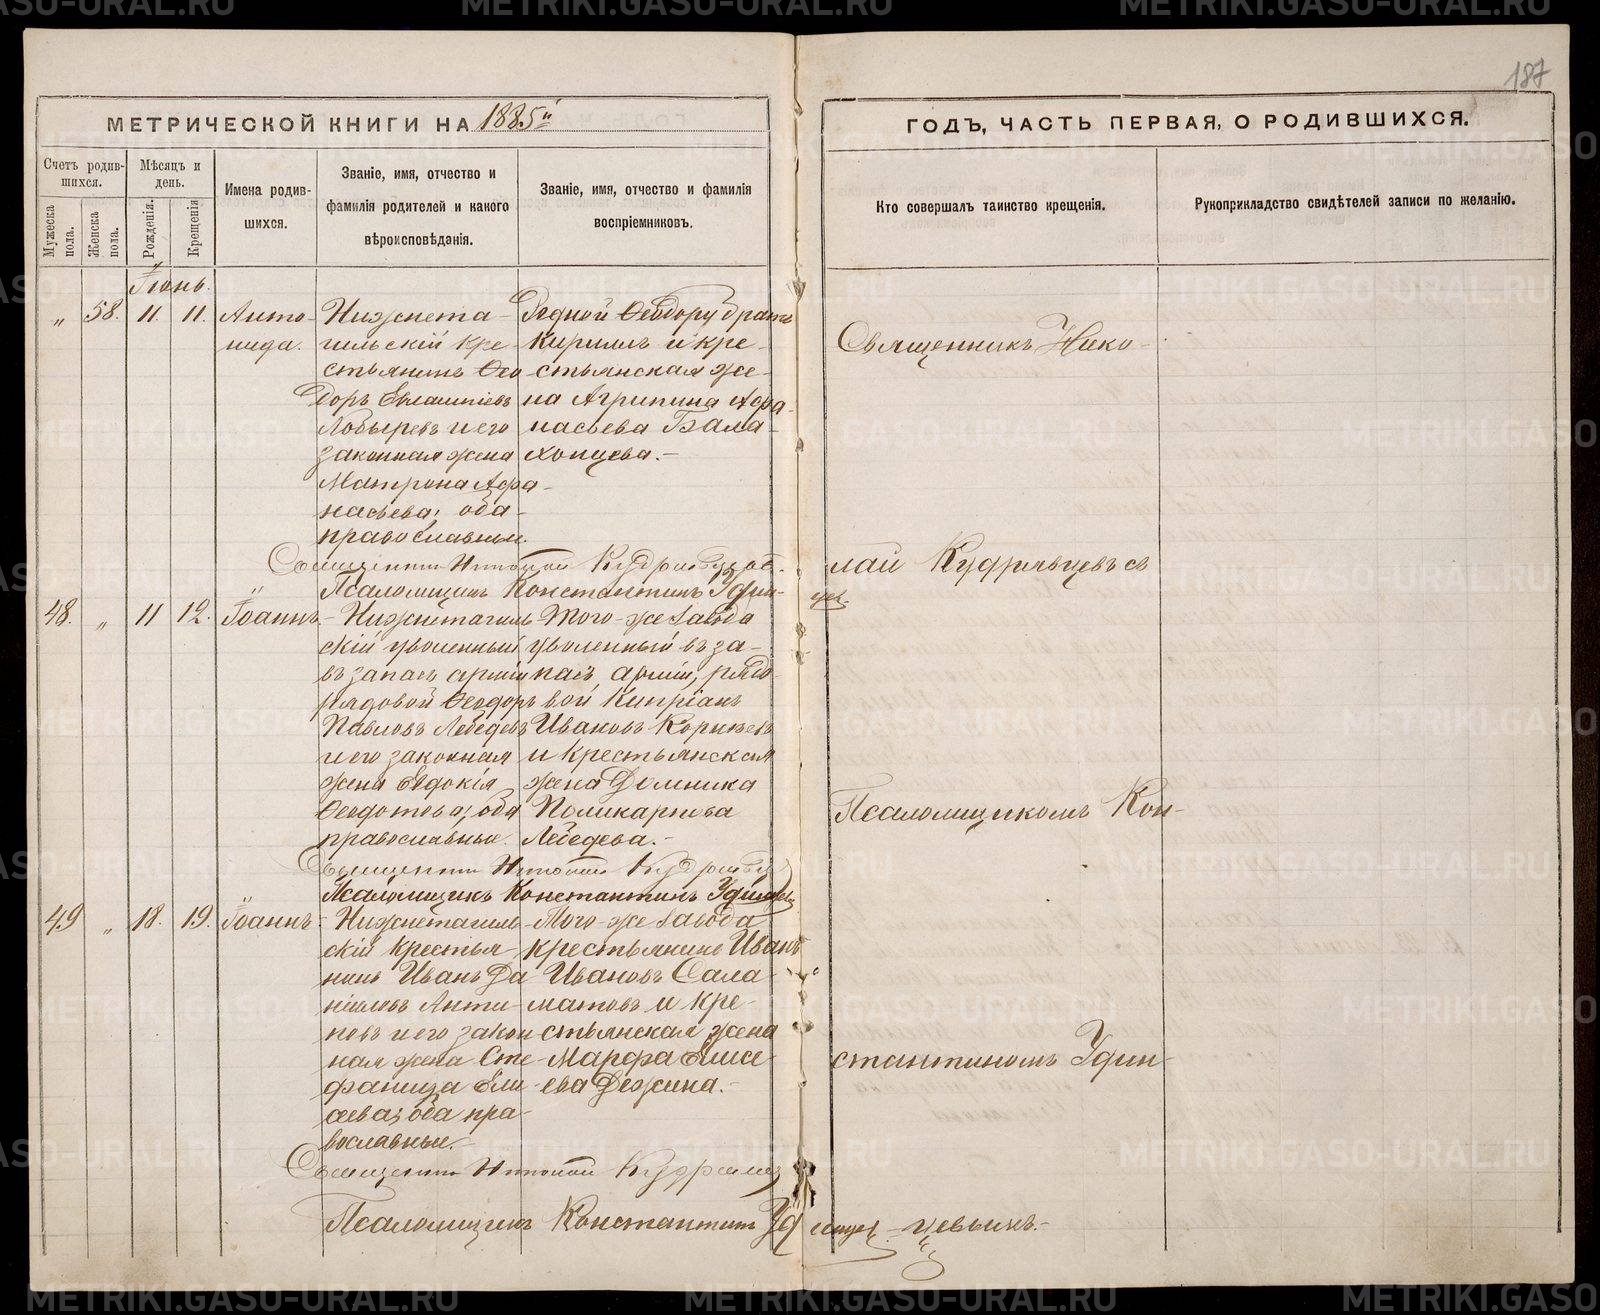 187
МЕТРИЧЕСКОЙ КНИГИ НА 1885й
ГОДЪ, ЧАСТЬ ПЕРВАЯ, О РОДИВШИХСЯ.
Счетъ родившихся.
Мужеска пола.
Женска пола.
Мѣсяцъ и день.
Рожденія.
Крещенія
Имена родившихся.
Званіе, имя, отчество и фамилія родителей и какого вѣроисповѣданія.
Званіе, имя, отчество и фамилія воспріемниковъ.
Кто совершалъ таинство крещенія.
Рукоприкладство свидѣтелей записи по желанію.
Іюнь.
" 58. 11. 11.
Анто-
нида.
Нижнета-
гильскій кре-
стьянинъ Ѳео
доръ
Лобыревъ и его
законная жена
Матрона Афа-
насьева; оба
православные.
Родной Ѳеодору братъ
Кириллъ и кре-
стьянская же-
на Агрипина Афа-
насьева Бала-
ханцева.-
Священникъ Нико-
лай Кудрявцевъ съ
Священникъ Николай Кудрявцевъ.
Псаломщикъ Константинъ Удин-
цев
48. " 11 12. Іоаннъ.
Нижнетагиль
скій уволенный
въ запасъ арміи
рядовой Ѳеодоръ
Павловъ Лебедевъ
и его законная
жена Евдокія
Ѳеодотова; оба
православные.
Того-же завода
уволенный въ за-
пасъ арміи, рядо
вой Кипріанъ
Ивановъ
и крестьянская
жена Домника
Поликарпова
Лебедева.-
Псаломщикомъ Кон-
стантиномъ Удин-
цевымъ.-
Священникъ Николай Кудрявцев
Псаломщикъ Константинъ Удинцев
49 " 18. 19. Іоаннъ.
Нижнетагиль-
скій крестья-
нинъ Иванъ Да
ніиловъ Анти-
повъ и его закон
ная жена Сте-
фанида Ели-
сеева; оба пра-
вославные.-
Того-же завода
крестьянинъ Иванъ
Ивановъ Сала-
матовъ и кре-
стьянская жена
Марфа Елисе-
ева Дежина.-
Священникъ Николай Кудрявцев
Псаломщикъ Константинъ Удинцев
METRIKI.GASO-URAL.RU